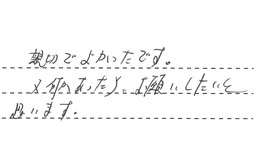 親切でよかったです。
又何かあったら、お願いしたいと
思います。